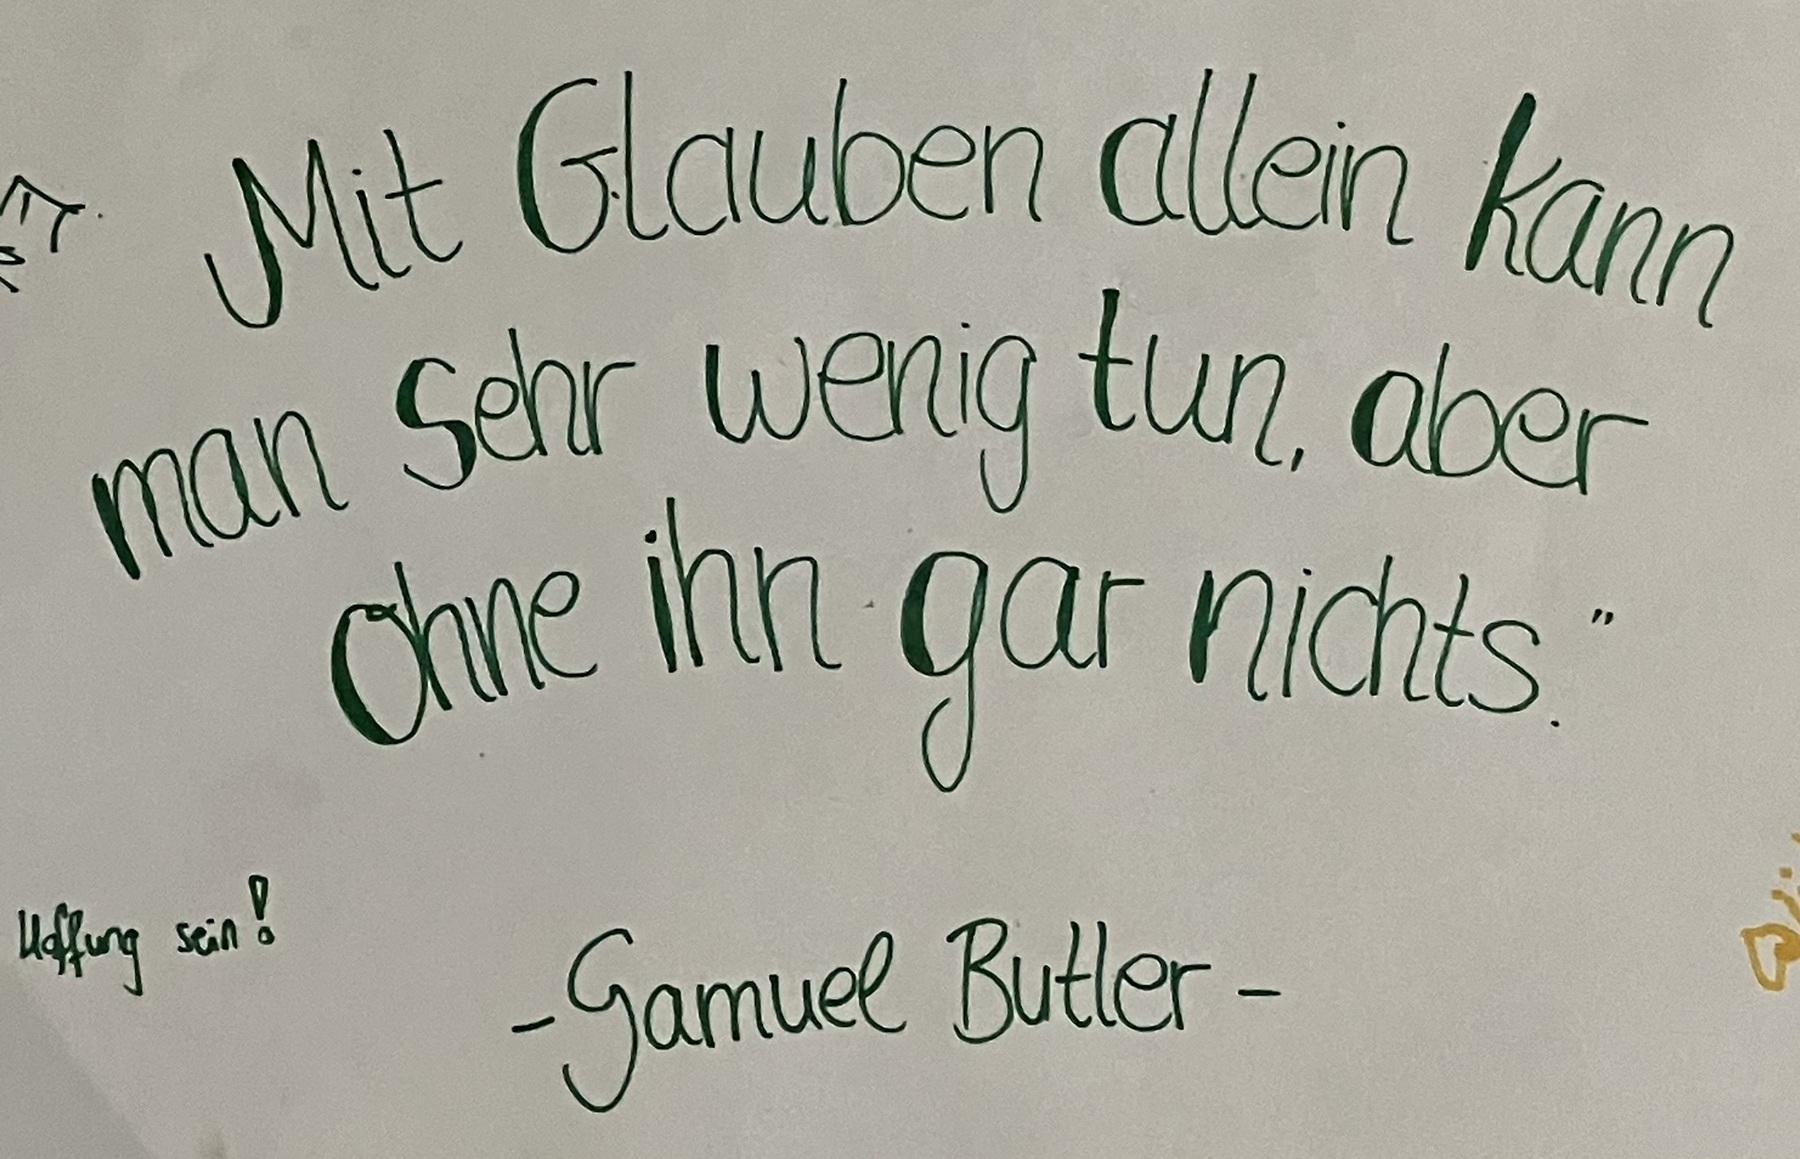 Mit Glauben allein kann
man sehr wenig tun, aber
ohne ihn gar nichts."
Hoffung sein!
- Samuel Butler -